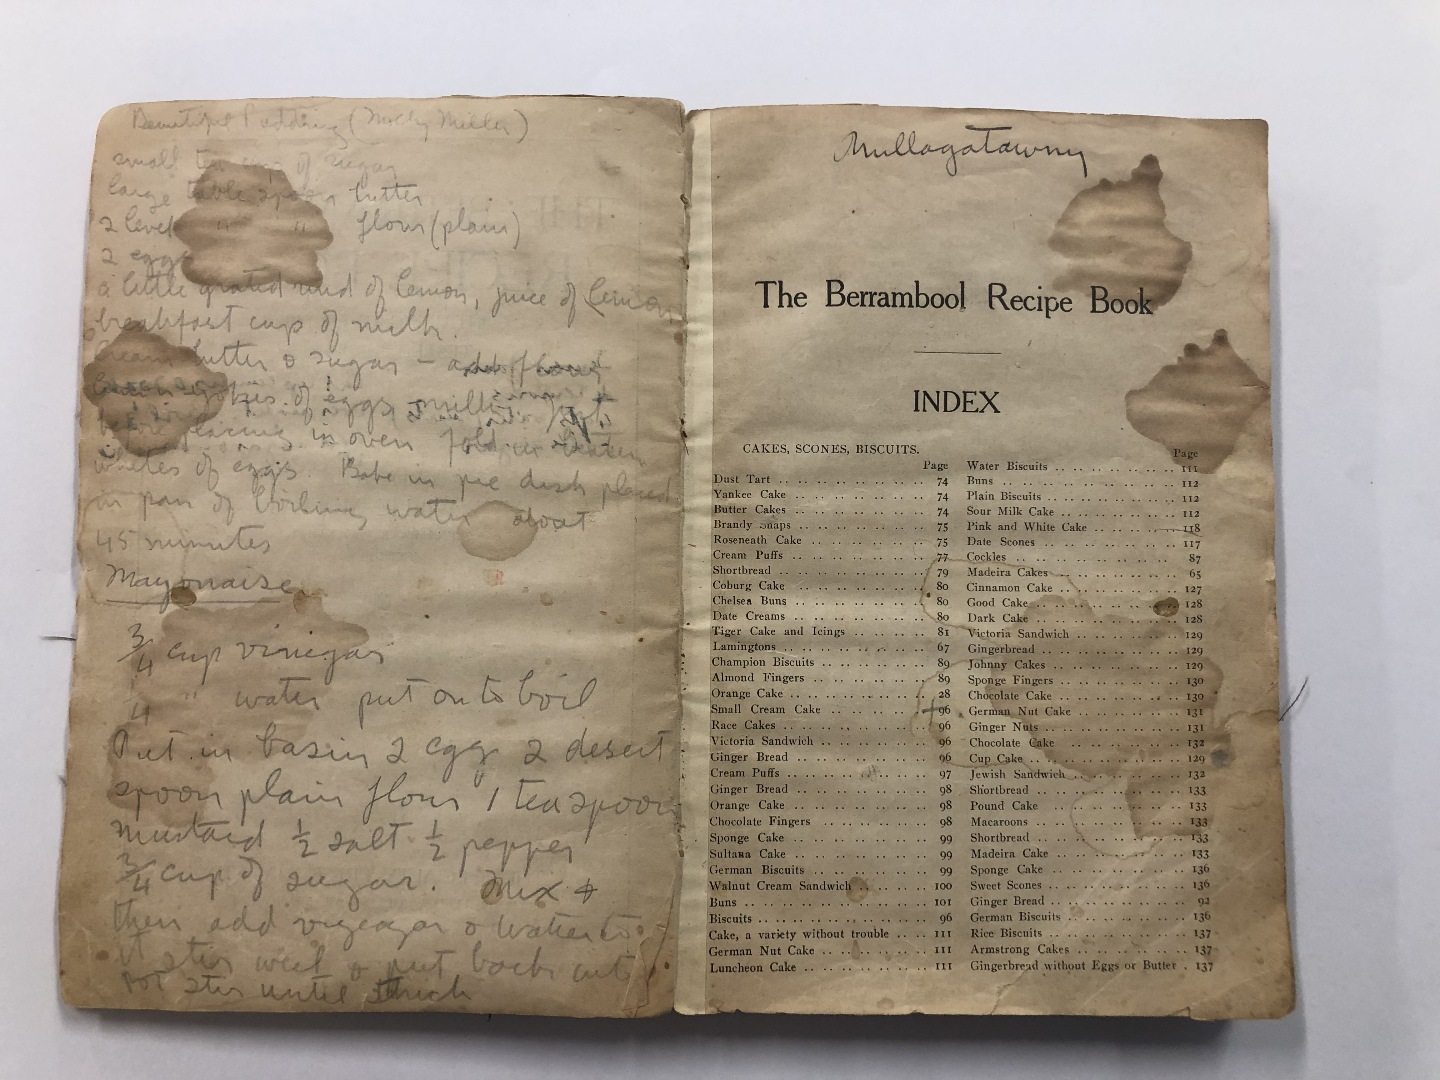 Beautiful Pudding (Molly Miller)
small tea cup of sugar
large table spoon butter
2 level " " flour (plain)
2 eggs
a little grated rind of lemon, juice of lemon
breakfast cup of milk.
Cream butter & sugar – add flour
yokes of eggs, milk
before placing in oven fold in beaten
whites of eggs. Bake in pie dish placed
in pan of boiling water about
45 minutes
Mayonaise
3/4 cup vinegar
1/4 " water put on to boil
Put in basin 2 egg 2 desert
spoon plain flour 1 teaspoon
mustard 1/2 salt 1/2 pepper
3/4 cup of sugar. Mix &
then add vinegar & water to
it stir well & put back into
pot stir until thick
Mullagatawny
The Berrambool Recipe Book
INDEX
CAKES, SCONES, BISCUITS.
Page
Dust Tart .. 74
Yankee Cake .. 74
Butter Cakes .. 74
Brandy Snaps .. 75
Roseneath Cake .. 75
Cream Puffs .. 77
Shortbread .. 79
Coburg Cake .. 80
Chelsea Buns .. 80
Date Creams .. 80
Tiger Cake and Icings .. 81
Lamingtons .. 67
Champion Biscuits .. 89
Almond Fingers .. 89
Orange Cake .. 28
Small Cream Cake .. 96
Race Cakes .. 96
Victoria Sandwich .. 96
Ginger Bread .. 96
Cream Puffs .. 97
Ginger Bread .. 98
Orange Cake .. 98
Chocolate Fingers .. 98
Sponge Cake .. 99
Sultana Cake .. 99
German Biscuits .. 99
Walnut Cream Sandwich .. 100
Buns .. 101
Biscuits .. 96
Cake, a variety without trouble .. 111
German Nut Cake .. 111
Luncheon Cake .. 111
Page
Water Biscuits .. 111
Buns .. 112
Plain Biscuits .. 112
Sour Milk Cake .. 112
Pink and White Cake .. 118
Date Scones .. 117
Cockles .. 87
Madeira Cakes .. 65
Cinnamon Cake .. 127
Good Cake .. 128
Dark Cake .. 128
Victoria Sandwich .. 129
Gingerbread .. 129
Johnny Cakes .. 129
Sponge Fingers .. 130
Chocolate Cake .. 130
German Nut Cake .. 131
Ginger Nuts .. 131
Chocolate Cake .. 132
Cup Cake .. 129
Jewish Sandwich .. 132
Shortbread .. 133
Pound Cake .. 133
Macaroons .. 133
Shortbread .. 133
Madeira Cake .. 133
Sponge Cake .. 136
Sweet Scones .. 136
Ginger Bread .. 92
German Biscuits .. 136
Rice Biscuits .. 137
Armstrong Cakes .. 137
Gingerbread without Eggs or Butter . 137